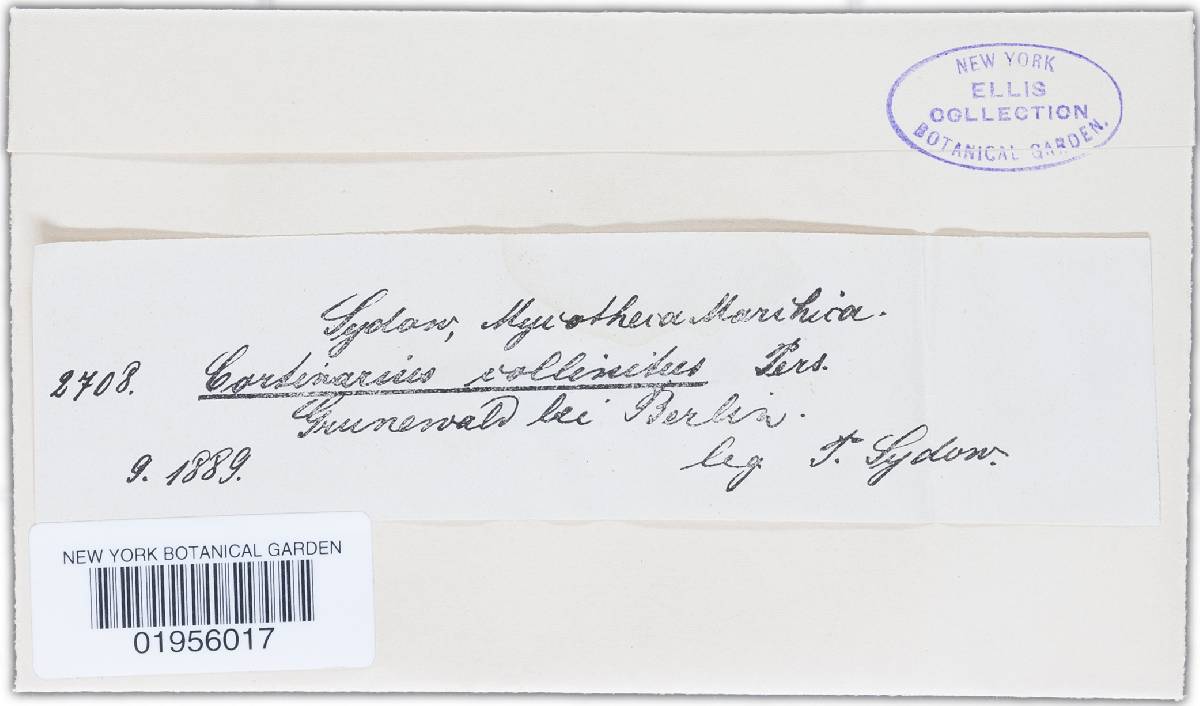 NEW YORK
ELLIS
COLLECTION
BOTANICAL GARDEN.
Sydow, Mycotheca Marchica.
2708. Cortinarius collinitus Pers.
Grunewald bei Berlin.
9. 1889. leg P. Sydow.
NEW YORK BOTANICAL GARDEN
01956017